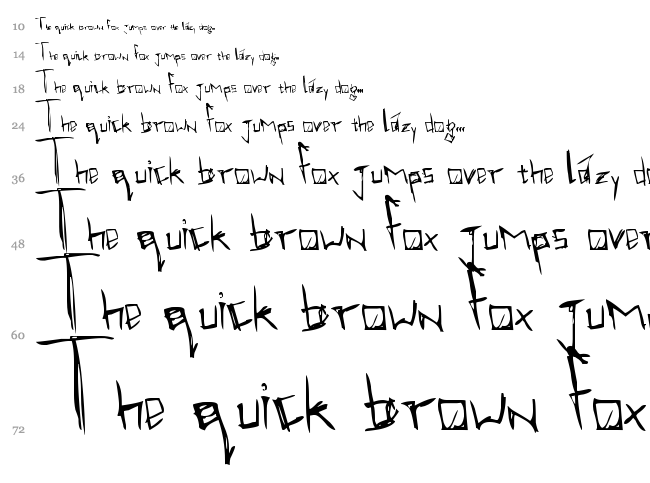 10 The quick brown fox jumps over the lazy dog...
14 The quick brown fox jumps over the lazy dog...
18 The quick brown fox jumps over the lazy dog...
24 The quick brown fox jumps over the lazy dog...
36 The quick brown fox jumps over the lazy do
48 The quick brown fox jumps over
60 The quick brown fox jum
72 The quick brown fox